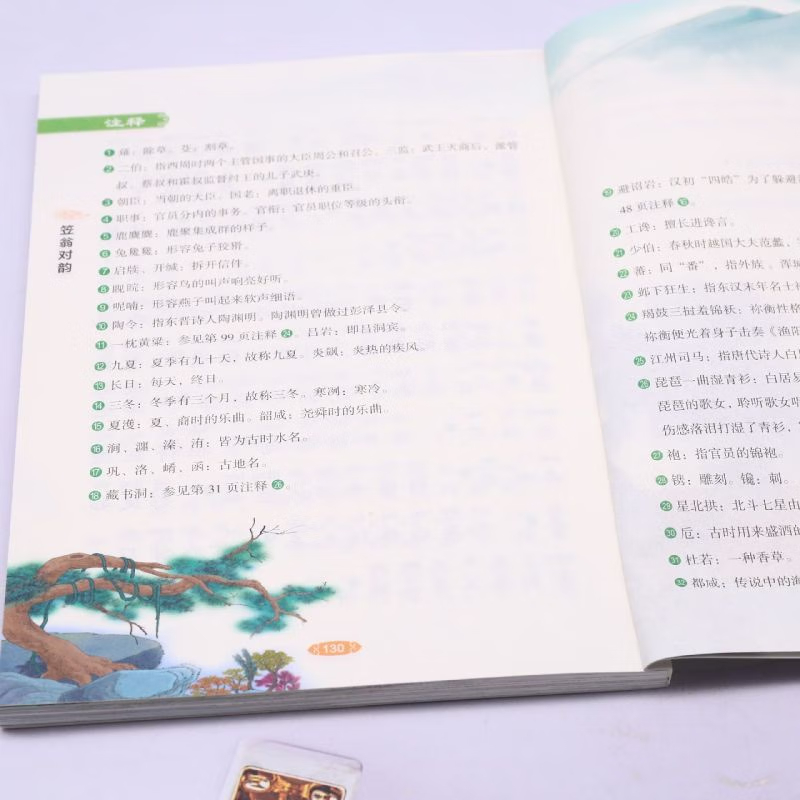 注释
❶ 薙：除草。芟：割草。
❷ 二伯：指西周时两个主管国事的大臣周公和召公。三监：武王灭商后，派管
叔、蔡叔和霍叔监督纣王的儿子武庚。
❸ 朝臣：当朝的大臣。国老：离职退休的重臣。
❹ 职事：官员分内的事务。官衔：官员职位等级的头衔。
❺ 鹿麌麌：鹿聚集成群的样子。
❻ 兔毚毚：形容兔子狡猾。
❼ 启牍、开缄：拆开信件。
❽ 睍睆：形容鸟的叫声响亮好听。
❾ 呢喃：形容燕子叫起来软声细语。
❿ 陶令：指东晋诗人陶渊明。陶渊明曾做过彭泽县令。
⓫ 一枕黄粱：参见第99页注释㉔。吕岩：即吕洞宾。
⓬ 九夏：夏季有九十天，故称九夏。炎飙：炎热的疾风。
⓭ 长日：每天，终日。
⓮ 三冬：冬季有三个月，故称三冬。寒冽：寒冷。
⓯ 夏濩：夏、商时的乐曲。韶咸：尧舜时的乐曲。
⓰ 涧、瀍、溱、洧：皆为古时水名。
⓱ 巩、洛、崤、函：古地名。
⓲ 藏书洞：参见第31页注释㉖。
笠翁对韵
130
⓳ 避诏岩：汉初“四皓”为了躲避
48页注释⓰。
⓴ 工谗：擅长进谗言。
㉑ 少伯：春秋时越国大夫范蠡，
㉒ 蕃：同“番”，指外族。浑
㉓ 邺下狂生：指东汉末年名士
㉔ 羯鼓三挝羞锦袄：祢衡性格
祢衡便光着身子击奏《渔阳
㉕ 江州司马：指唐代诗人白
㉖ 琵琶一曲湿青衫：白居易
琵琶的歌女，聆听歌女
伤感落泪打湿了青衫，
㉗ 袍：指官员的锦袍。
㉘ 镌：雕刻。镵：刺。
㉙ 星北拱：北斗七星由
㉚ 卮：古时用来盛酒的
㉛ 杜若：一种香草。
㉜ 都咸：传说中的